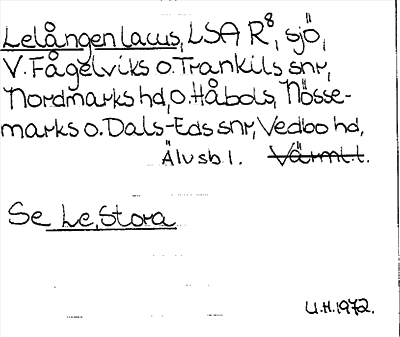 Lelången lacus, LSA R8, sjö,
V. Fågelviks o. Trankils snr,
Nordmarks hd, o. Håbols, Nösse-
marks o. Dals-Eds snr, Vedbo hd,
Älvsb l. Värml. l.
Se Le, Stora
U.H. 1972.